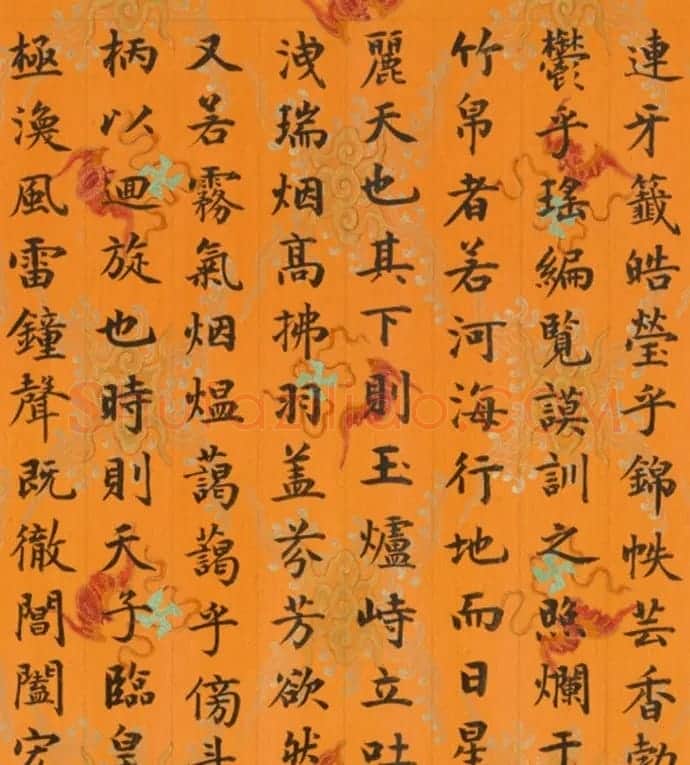 連牙籤皓瑩乎錦帙芸香勃
鬱乎瑤編覽謨訓之照爛于
竹帛者若河海行地而日星
麗天也其下則玉爐峙立吐
洩瑞烟髙拂羽盖芬芳欲然
又若霧氣烟熅藹藹乎傍斗
柄以迴旋也時則天子臨皇
極渙風雷鐘聲既徹閶闔宏